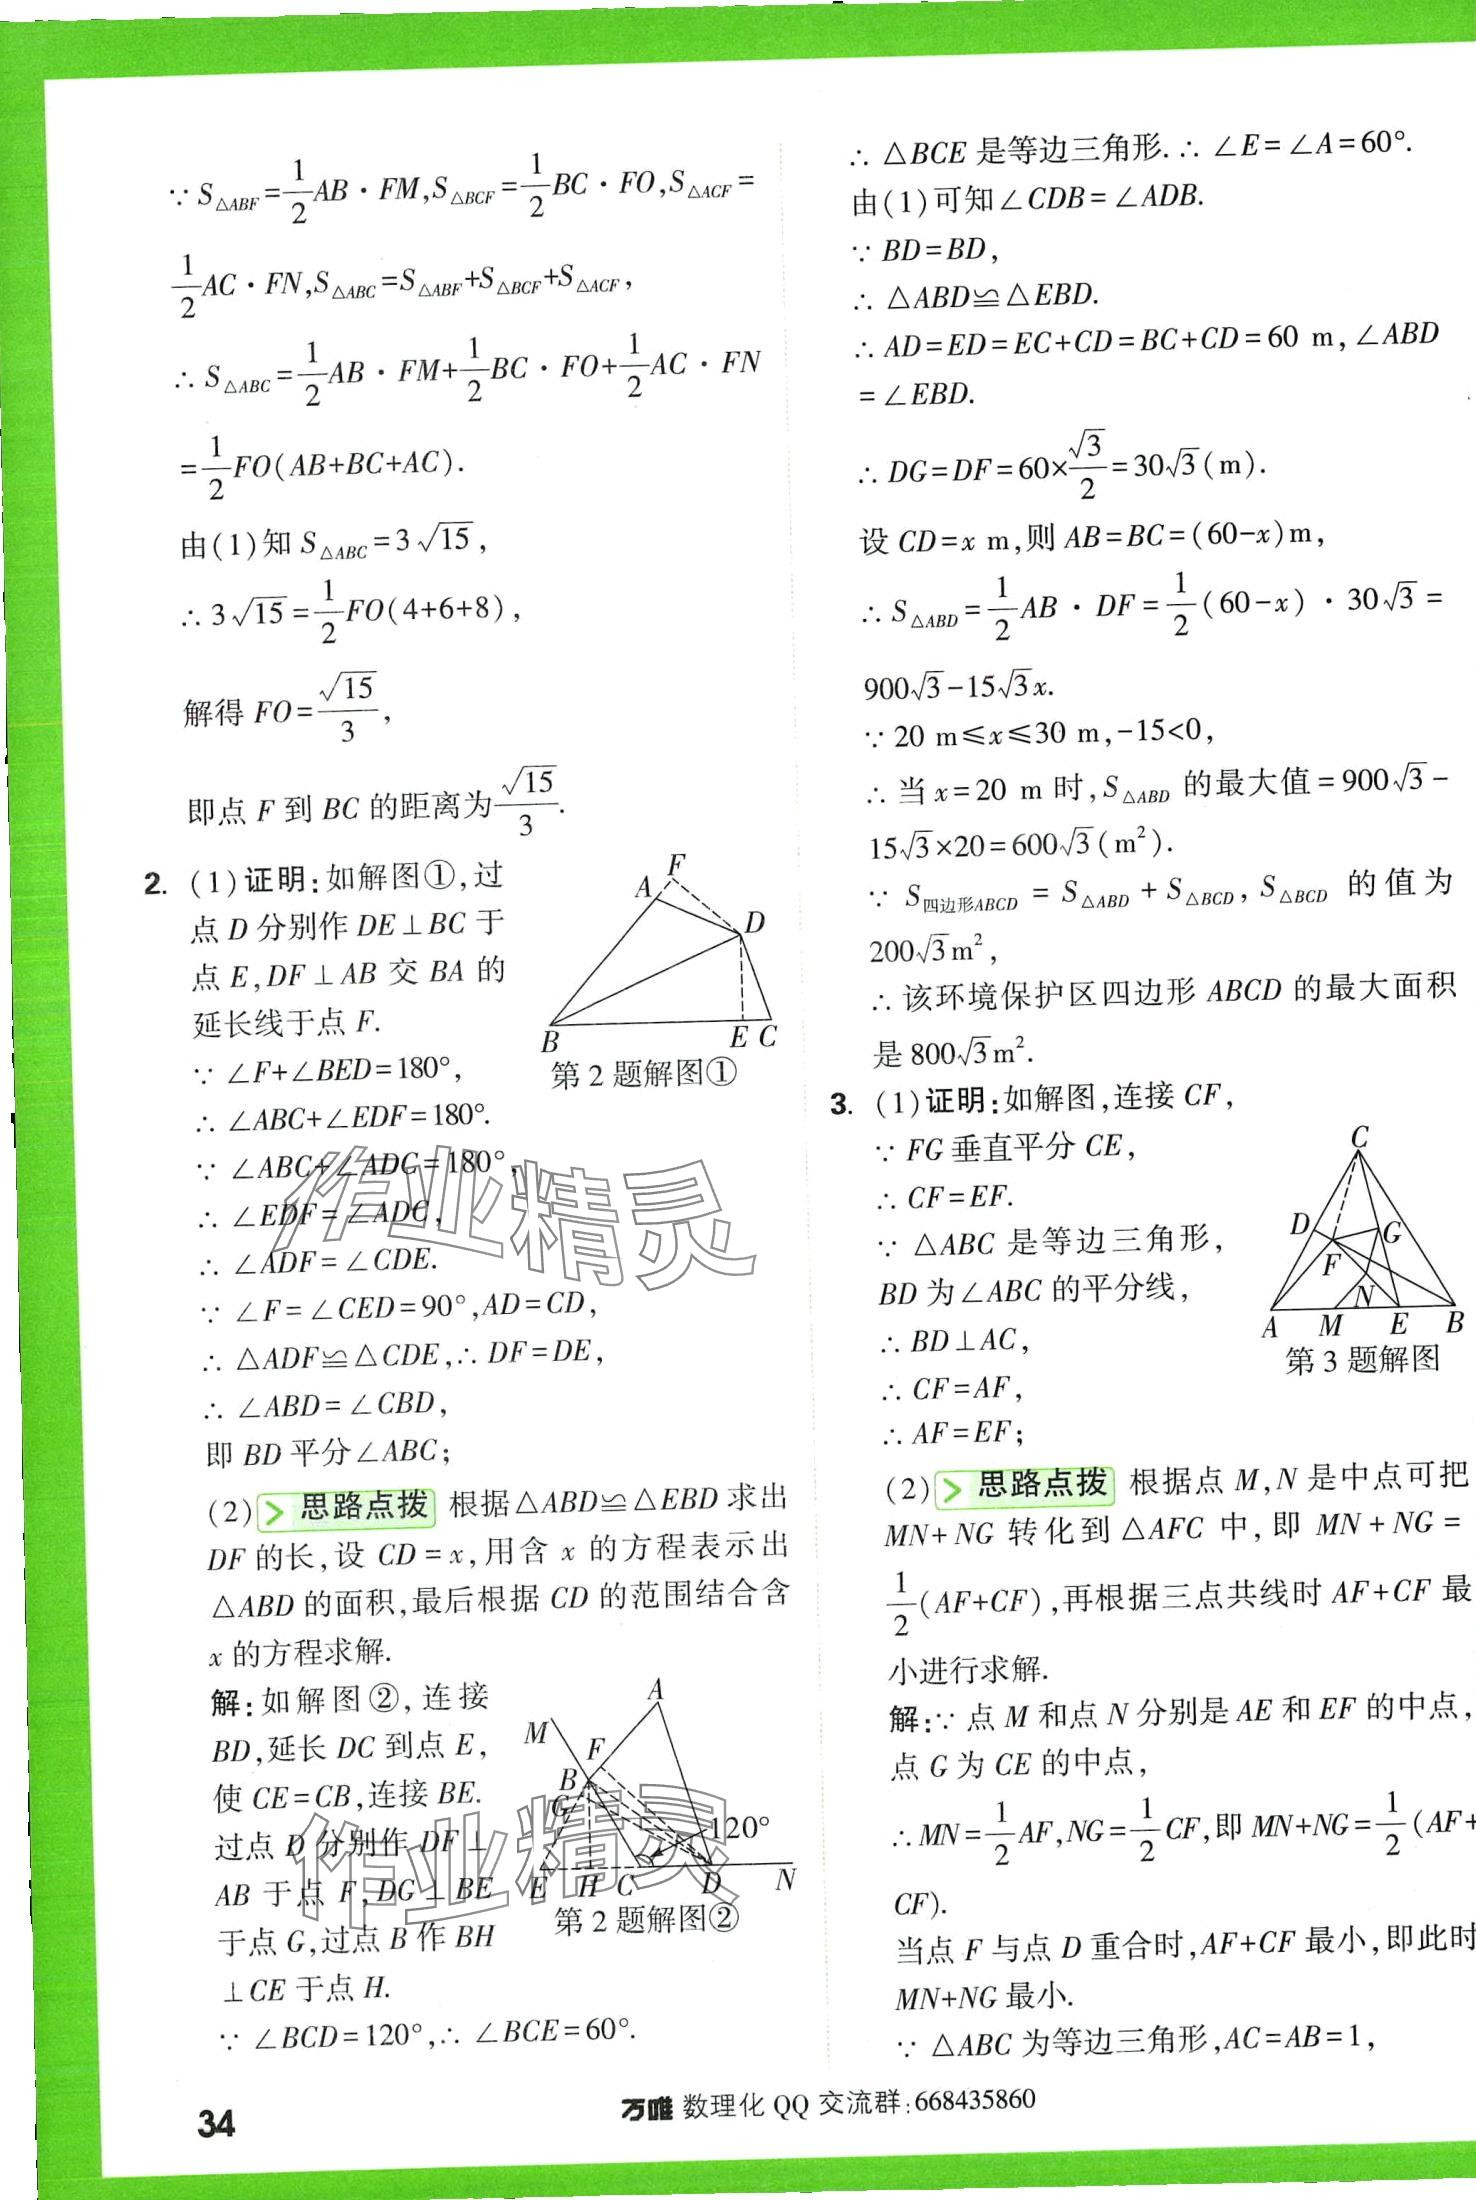 ∵ S△ABF=1/2 AB·FM,S△BCF=1/2 BC·FO,S△ACF=
1/2 AC·FN,S△ABC=S△ABF+S△BCF+S△ACF,
∴ S△ABC=1/2 AB·FM+1/2 BC·FO+1/2 AC·FN
=1/2 FO(AB+BC+AC).
由(1)知 S△ABC=3√15,
∴ 3√15=1/2 FO(4+6+8),
解得 FO=√15/3,
即点 F 到 BC 的距离为√15/3.
2. (1)证明:如解图①,过
点 D 分别作 DE⊥BC 于
点 E,DF⊥AB 交 BA 的
延长线于点 F.
∵ ∠F+∠BED=180°,
∴ ∠ABC+∠EDF=180°.
∵ ∠ABC+∠ADC=180°,
∴ ∠EDF=∠ADC,
∴ ∠ADF=∠CDE.
∵ ∠F=∠CED=90°,AD=CD,
∴ △ADF≌△CDE,∴ DF=DE,
∴ ∠ABD=∠CBD,
即 BD 平分∠ABC;
F
A
D
B
E
C
第 2 题解图①
(2) > 思路点拨 根据△ABD≌△EBD 求出
DF 的长,设 CD=x,用含 x 的方程表示出
△ABD 的面积,最后根据 CD 的范围结合含
x 的方程求解.
解:如解图②,连接
BD,延长 DC 到点 E,
使 CE=CB,连接 BE.
过点 D 分别作 DF⊥
AB 于点 F,DG⊥BE
于点 G,过点 B 作 BH
⊥CE 于点 H.
∵ ∠BCD=120°,∴ ∠BCE=60°.
A
M
F
B
G
120°
E
H
C
D
N
第 2 题解图②
∴ △BCE 是等边三角形.∴ ∠E=∠A=60°.
由(1)可知∠CDB=∠ADB.
∵ BD=BD,
∴ △ABD≌△EBD.
∴ AD=ED=EC+CD=BC+CD=60 m,∠ABD
=∠EBD.
∴ DG=DF=60×√3/2=30√3(m).
设 CD=x m,则 AB=BC=(60-x)m,
∴ S△ABD=1/2 AB·DF=1/2(60-x)·30√3=
900√3-15√3x.
∵ 20 m≤x≤30 m,-15<0,
∴ 当 x=20 m 时,S△ABD 的最大值=900√3-
15√3×20=600√3(m²).
∵ S四边形ABCD = S△ABD + S△BCD, S△BCD 的值为
200√3m²,
∴ 该环境保护区四边形 ABCD 的最大面积
是 800√3m².
3. (1)证明:如解图,连接 CF,
∵ FG 垂直平分 CE,
∴ CF=EF.
∵ △ABC 是等边三角形,
BD 为∠ABC 的平分线,
∴ BD⊥AC,
∴ CF=AF,
∴ AF=EF;
C
D
G
F
N
A
M
E
B
第 3 题解图
(2) > 思路点拨 根据点 M,N 是中点可把
MN+NG 转化到△AFC 中,即 MN+NG=
1/2(AF+CF),再根据三点共线时 AF+CF 最
小进行求解.
解:∵ 点 M 和点 N 分别是 AE 和 EF 的中点,
点 G 为 CE 的中点,
∴ MN=1/2 AF,NG=1/2 CF,即 MN+NG=1/2(AF+
CF).
当点 F 与点 D 重合时,AF+CF 最小,即此时
MN+NG 最小.
∵ △ABC 为等边三角形,AC=AB=1,
作业精灵
作业精灵
34
万唯 数理化 QQ 交流群:668435860